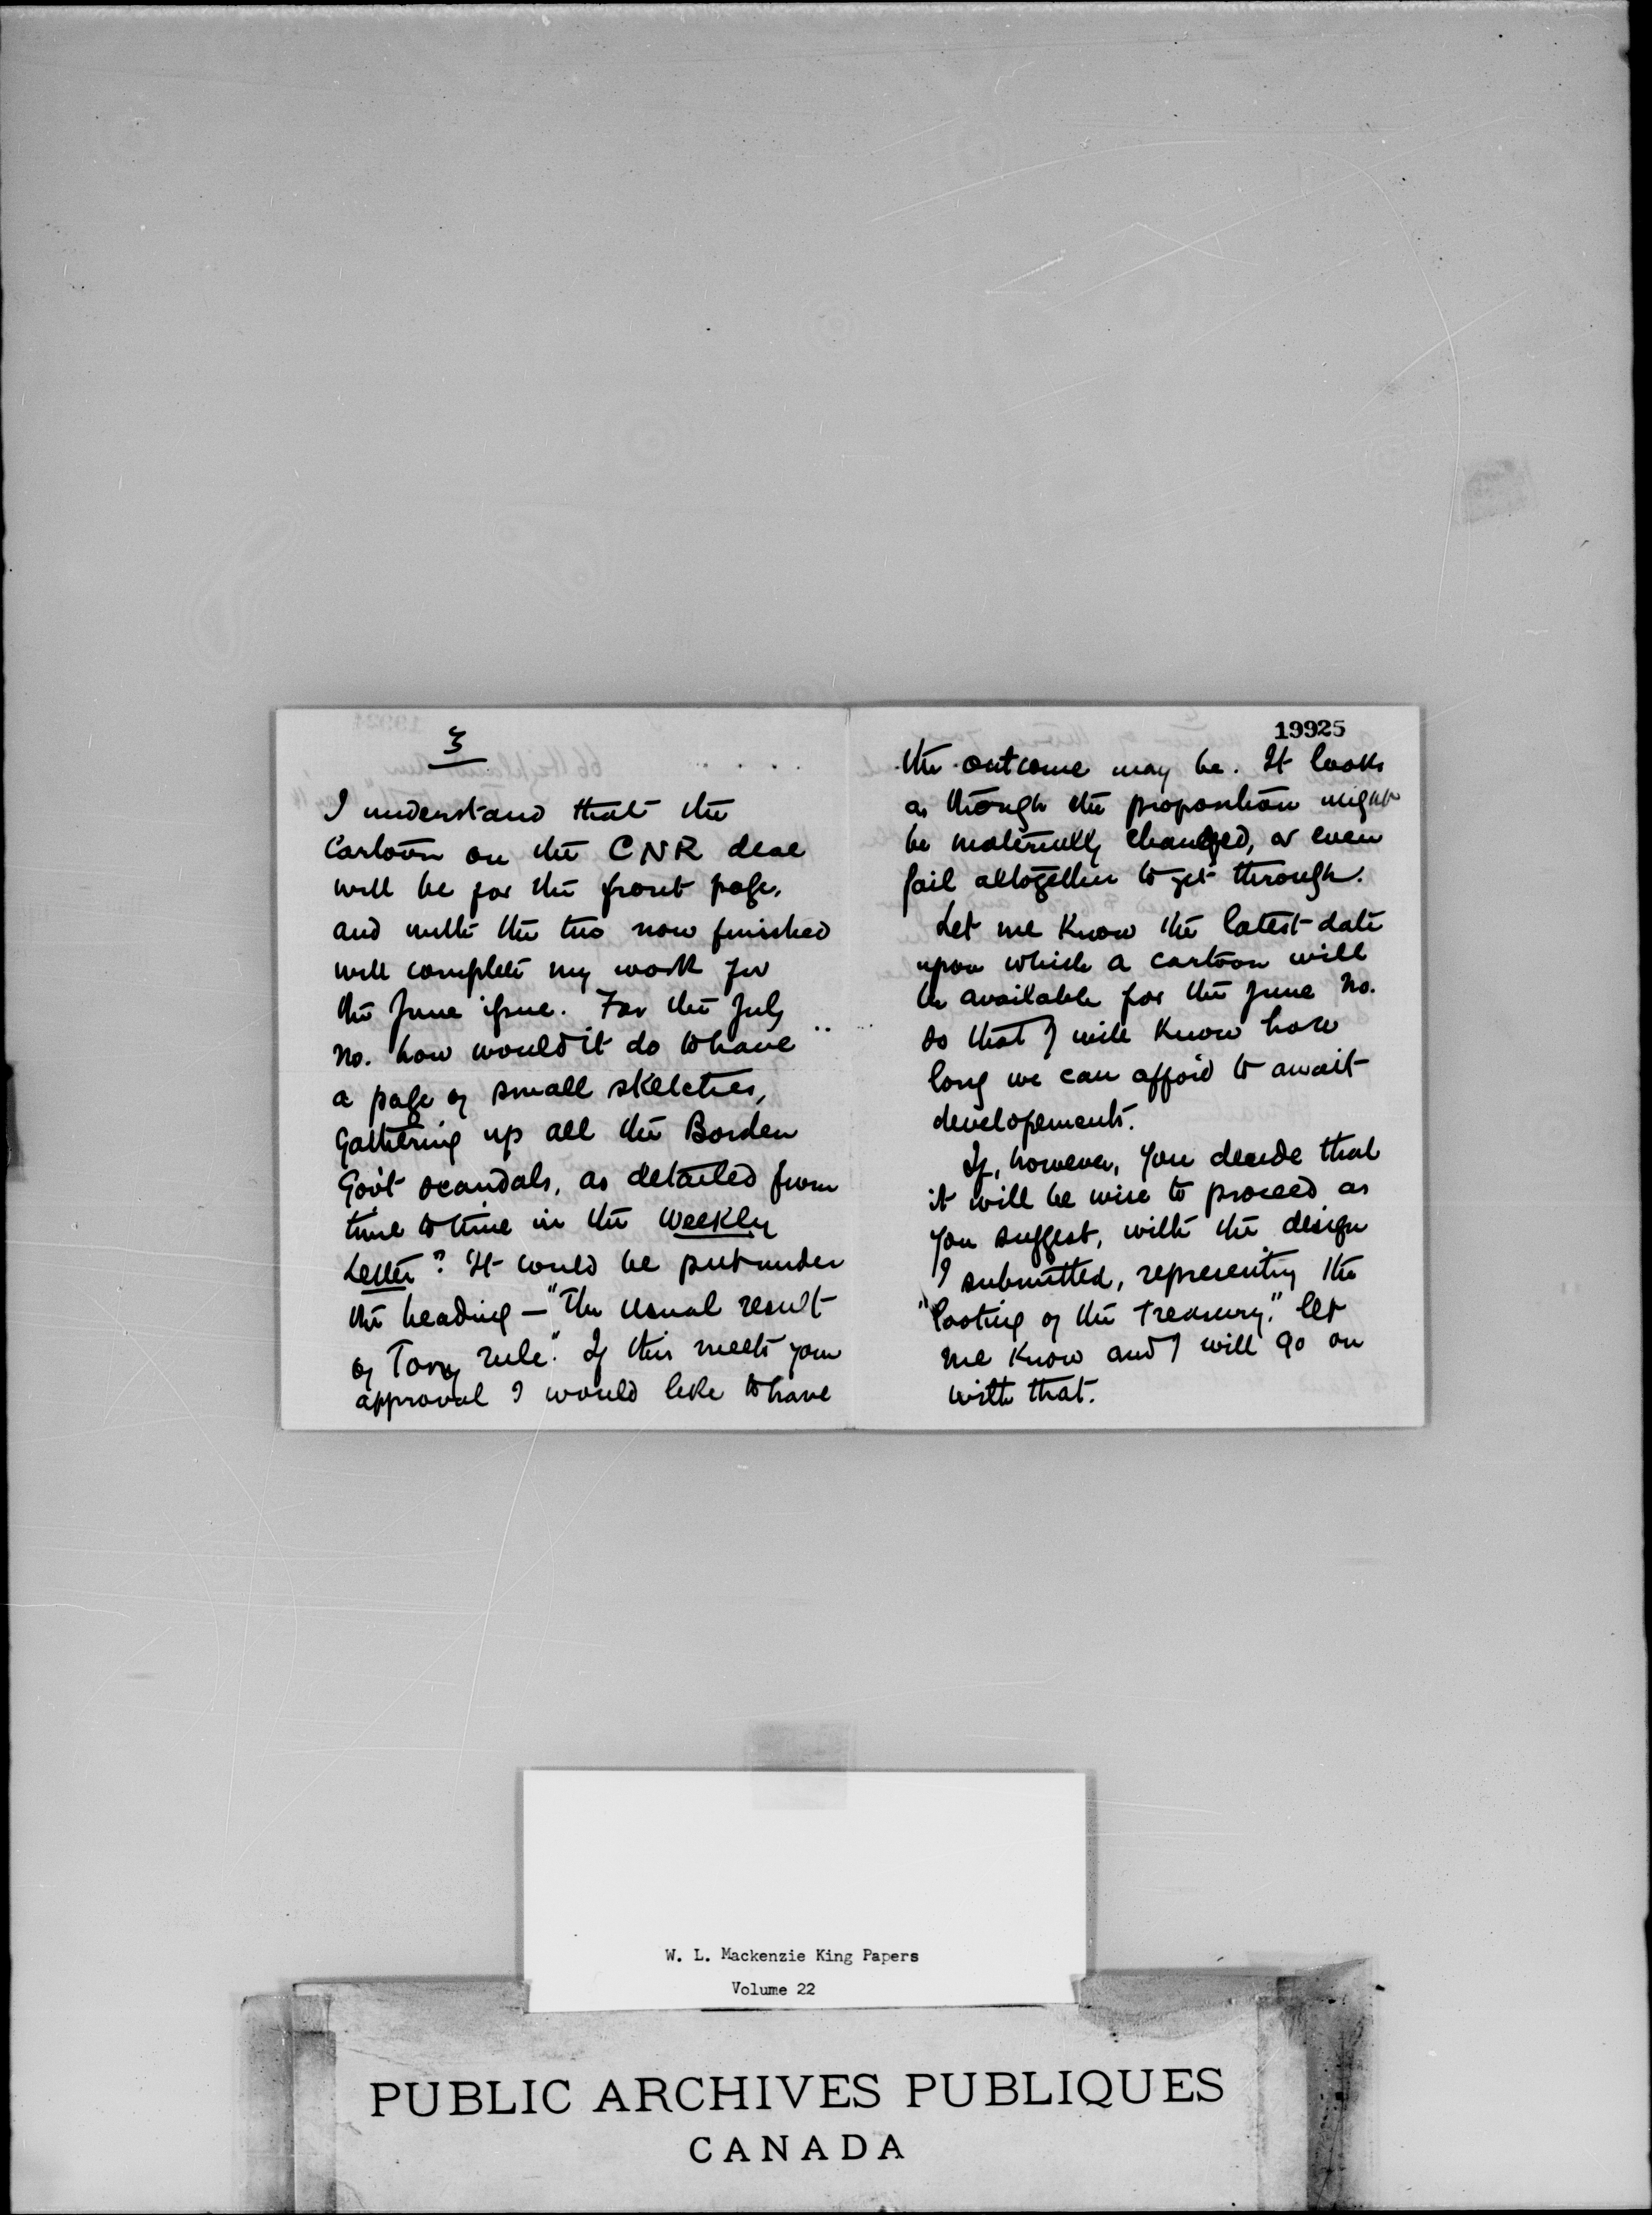 3
I understand that the
Cartoon on the CNR deal
will be for the front page,
and with the two now finished
will complete my work for
the June issue. For the July
No. how would it do to have
a page of small skeletches,
Gathering up all the Borden
Gov't scandals, as detailed from
time to time in the Weekly
Letter? It could be put under
the heading — "The usual result
of Tory rule." If this meets your
approval I would like to have
19925
the outcome may be. It looks
as though the proposition might
be materially changed, or even
fail altogether to get through.
Let me know the latest date
upon which a cartoon will
be available for the June No.
so that I will know how
long we can afford to await
developements.
If, however, you decide that
it will be wise to proceed as
you suggest, with the design
I submitted, representing the
"looting of the Treasury," let
me know and I will go on
with that.
W. L. Mackenzie King Papers
Volume 22
PUBLIC ARCHIVES PUBLIQUES
CANADA